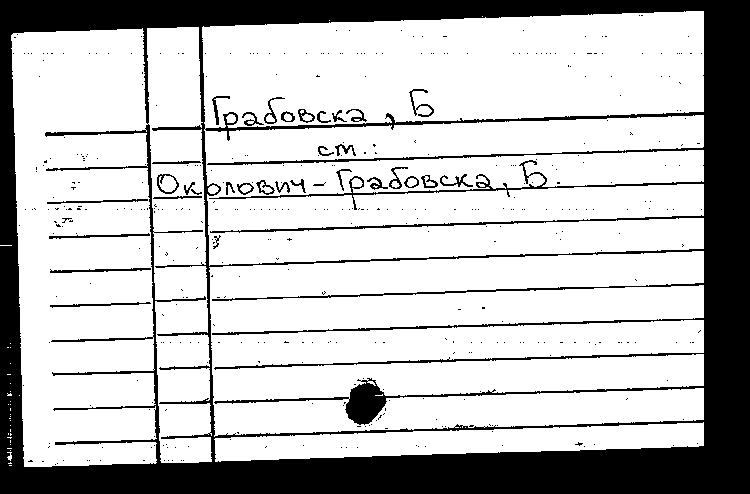 Грабовска, Б
ст.:
Околович-Грабовска, Б.